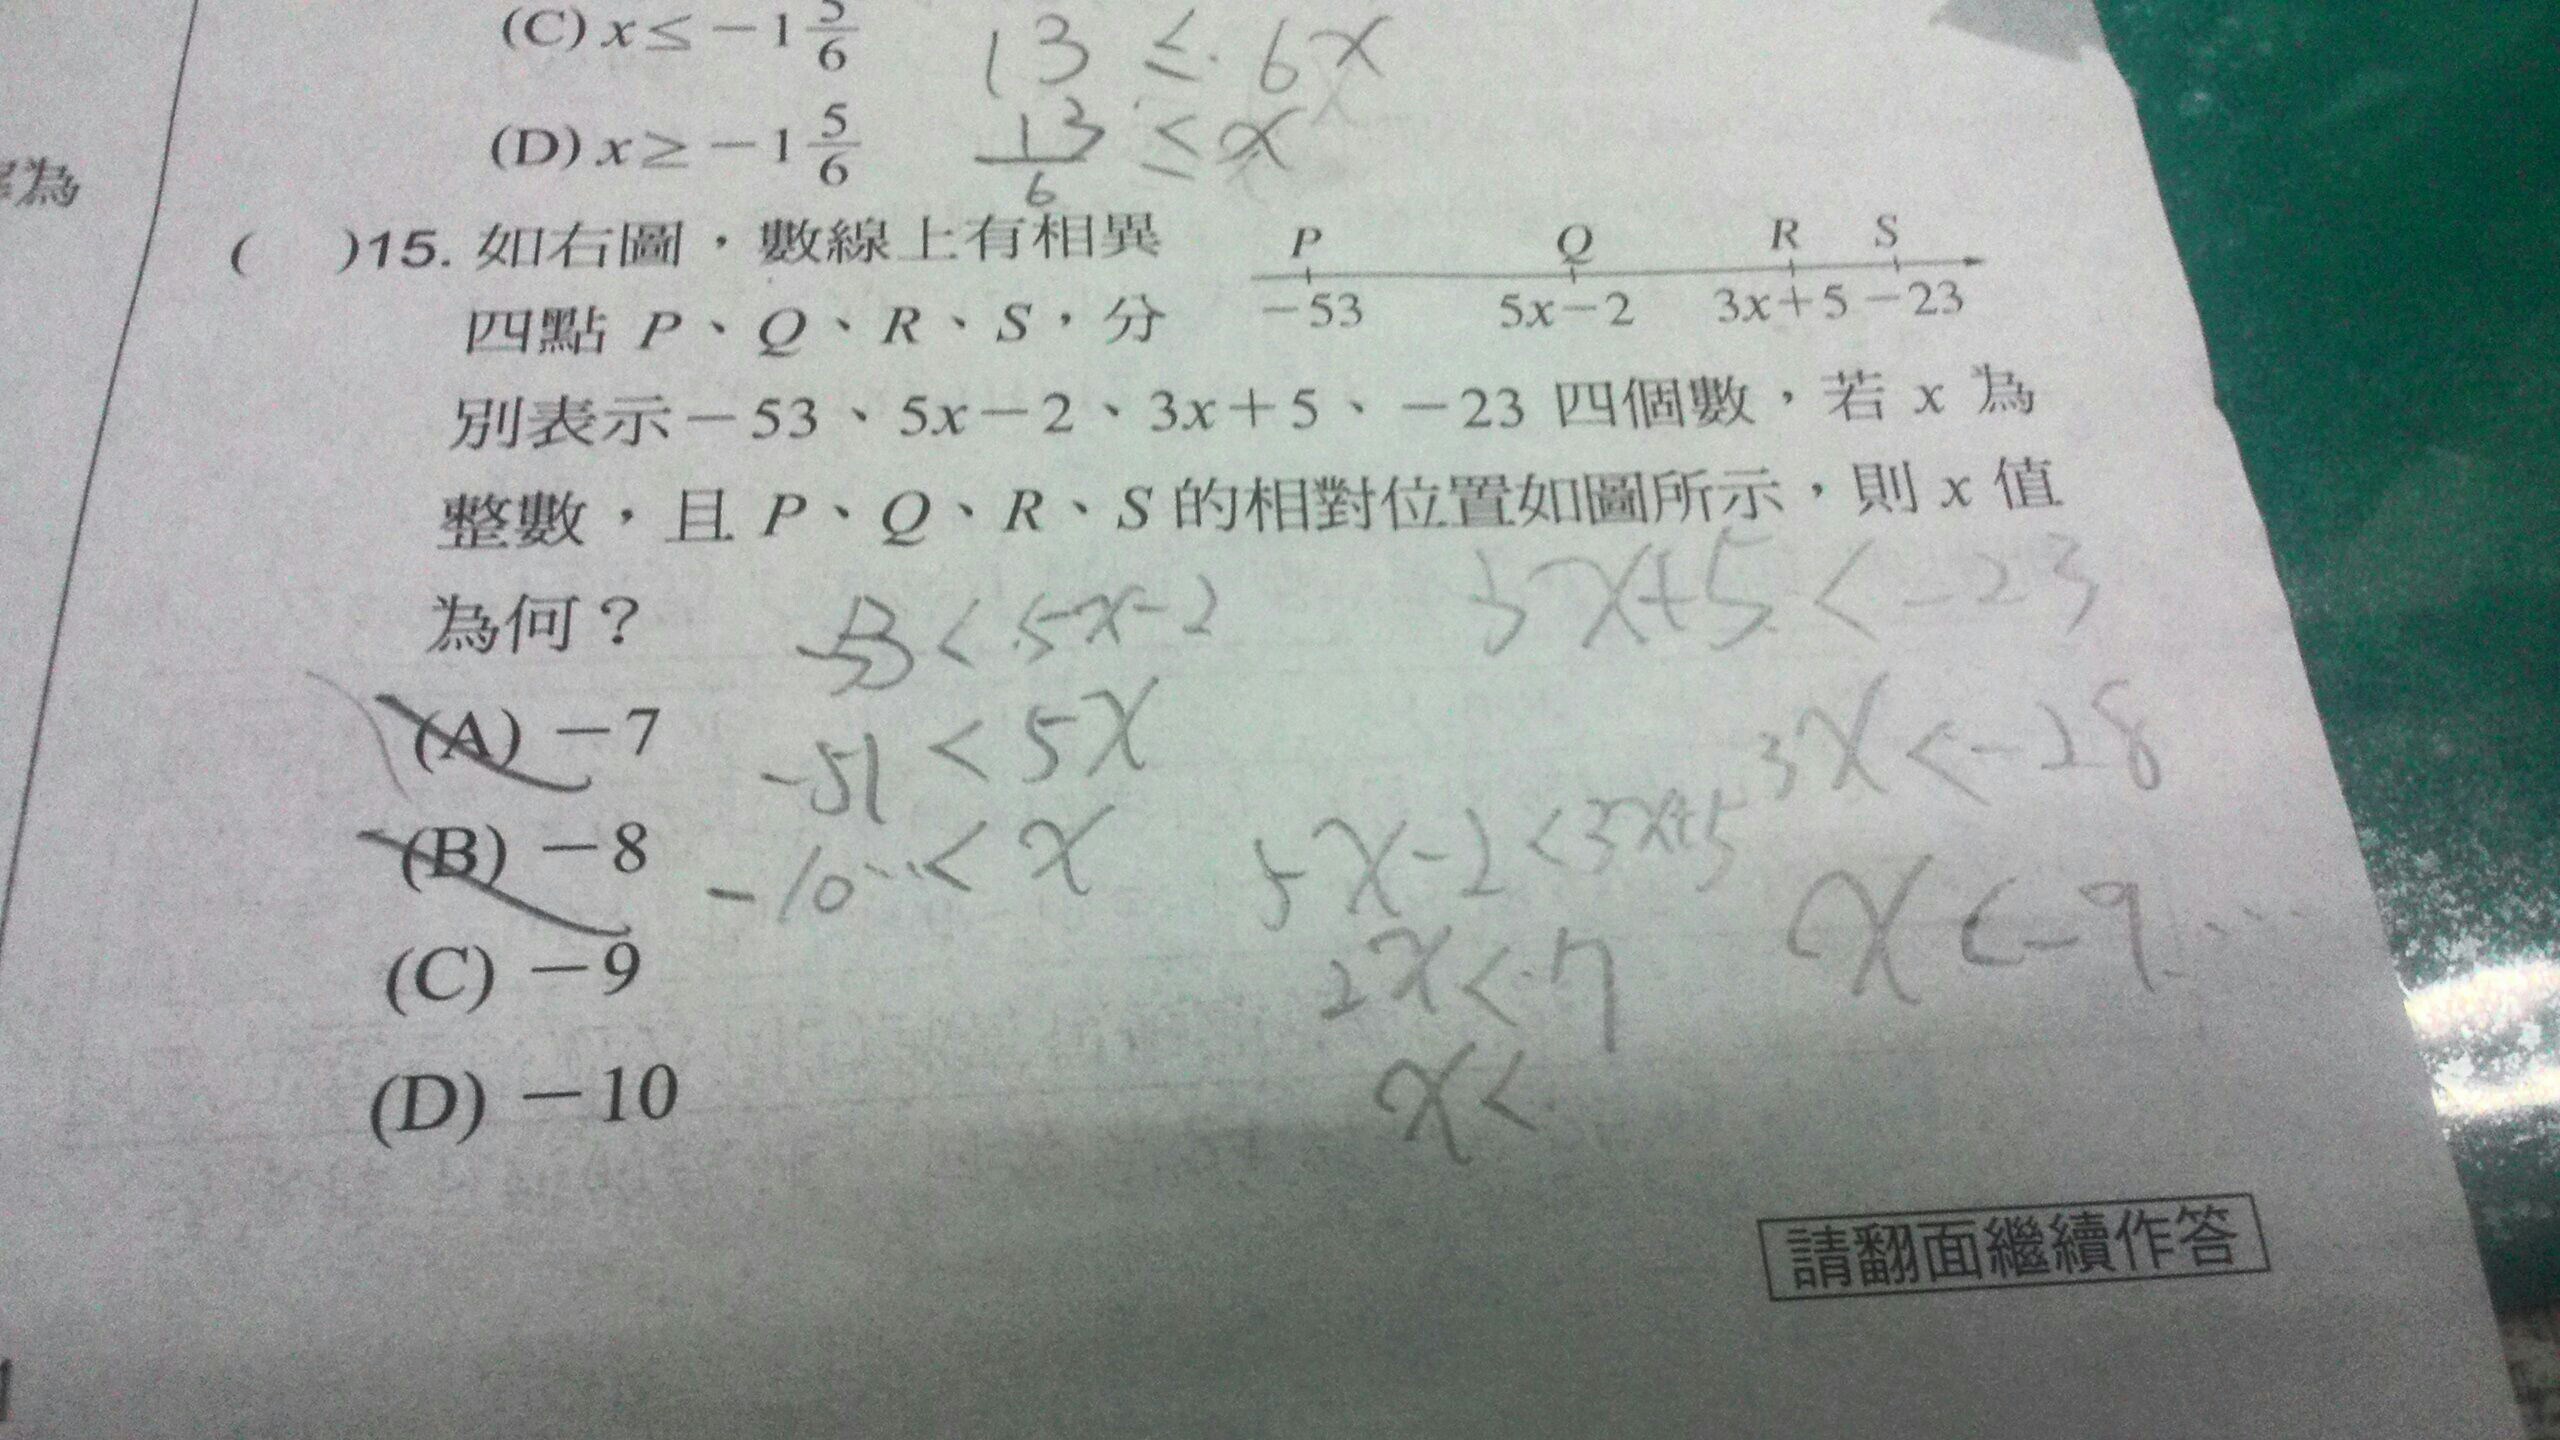 (C) x≤−1 5/6
13 ≤ 6x
(D) x≥−1 5/6
13/6 ≤ x
為
( )15. 如右圖，數線上有相異
P Q R S
−53 5x−2 3x+5 −23
四點 P、Q、R、S，分
別表示−53、5x−2、3x+5、−23 四個數，若 x 為
整數，且 P、Q、R、S 的相對位置如圖所示，則 x 值
為何？
−53 < 5x−2
3x+5 < −23
(A) −7
−51 < 5x
3x < −28
(B) −8
−10... < x
5x−2 < 3x+5
x < −9...
(C) −9
2x < 7
(D) −10
x <
請翻面繼續作答